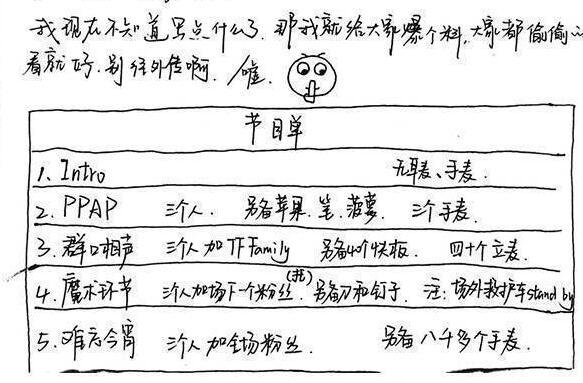 我现在不知道写点什么了,那我就给大家爆个料,大家都偷偷
看就好,别往外传啊。嘘
节目单
1. Intro 无耳麦、手麦.
2. PPAP 三个人. 另备苹果、笔、菠萝. 三个手麦.
3. 群口相声 三个人加TFfamily 另备40个快板. 四十个立麦.
4. 魔术环节 三个人加场下一个粉丝(托). 另备刀和钉子. 注:场外救护车stand by
5. 难忘今宵 三个人加全场粉丝. 另备八千多个手麦.